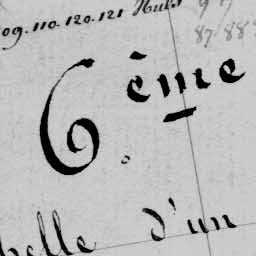 09. 110. 120. 121
87. 88
6.ème
belle d'un